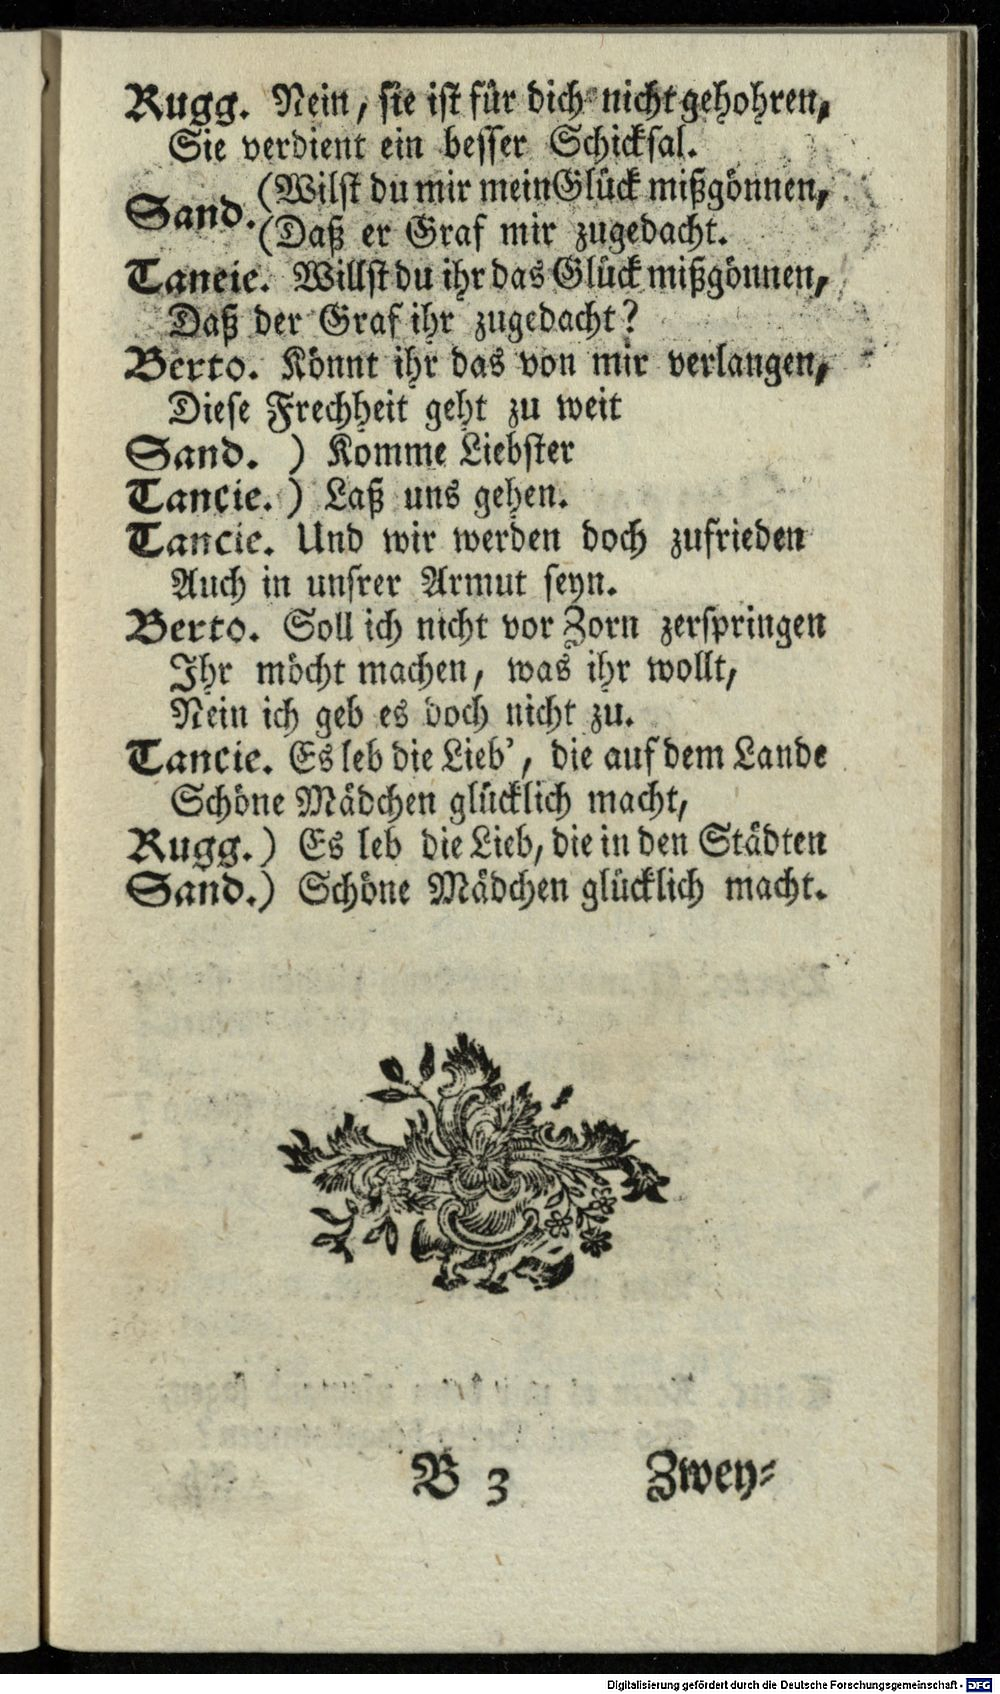 Rugg. Nein, sie ist für dich nicht gehohren,
Sie verdient ein besser Schicksal.
Sand. (Wilst du mir mein Glück mißgönnen,
(Daß er Graf mir zugedacht.
Tancie. Willst du ihr das Glück mißgönnen,
Daß der Graf ihr zugedacht?
Berto. Könnt ihr das von mir verlangen,
Diese Frechheit geht zu weit
Sand. ) Komme Liebster
Tancie. ) Laß uns gehen.
Tancie. Und wir werden doch zufrieden
Auch in unsrer Armut seyn.
Berto. Soll ich nicht vor Zorn zerspringen
Ihr möcht machen, was ihr wollt,
Nein ich geb es doch nicht zu.
Tancie. Es leb die Lieb', die auf dem Lande
Schöne Mädchen glücklich macht,
Rugg.) Es leb die Lieb, die in den Städten
Sand.) Schöne Mädchen glücklich macht.
B 3 Zwey-
Digitalisierung gefördert durch die Deutsche Forschungsgemeinschaft - DFG